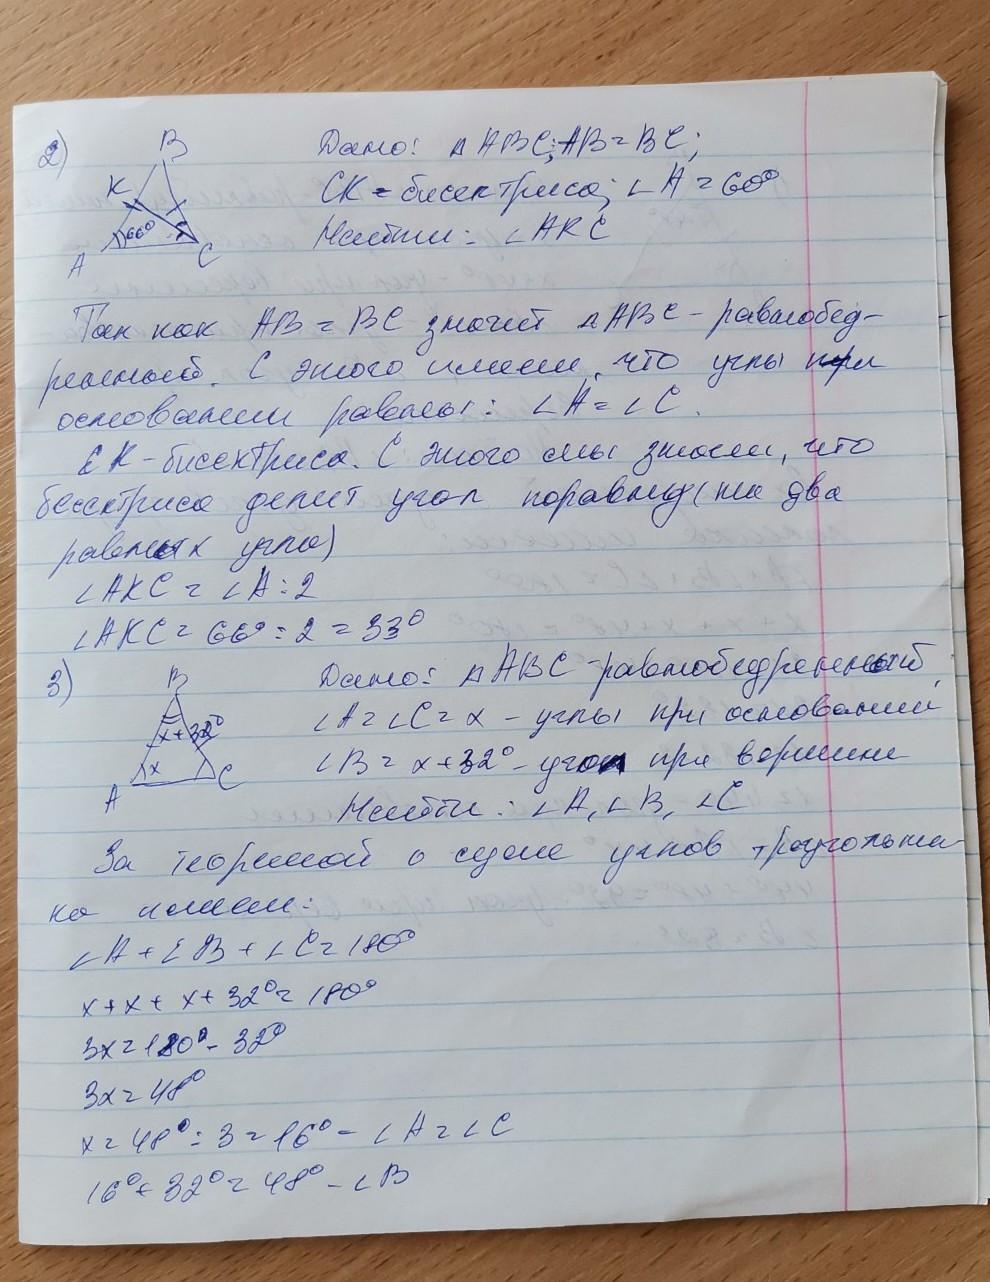 2)
B
K
66°
A
C
Дано: △ABC; AB = BC;
CK - бисектриса; ∠A = 60°
Найти: ∠AKC
Так как AB = BC значит △ABC - равнобед-
ренный. С этого имеем, что углы при
основании равны: ∠A = ∠C.
CK - бисектриса. С этого мы знаем, что
бесектриса делит угол поравну (на два
равных угла)
∠AKC = ∠A : 2
∠AKC = 66° : 2 = 33°
3)
B
x+32°
x
A
C
Дано: △ABC - равнобедренный
∠A = ∠C = x - углы при основании
∠B = x + 32° - угол при вершине
Найти: ∠A, ∠B, ∠C
За теоремой о суме углов треугольни-
ка имеем:
∠A + ∠B + ∠C = 180°
x + x + x + 32° = 180°
3x = 180° - 32°
3x = 48°
x = 48° : 3 = 16° - ∠A = ∠C
16° + 32° = 48° - ∠B